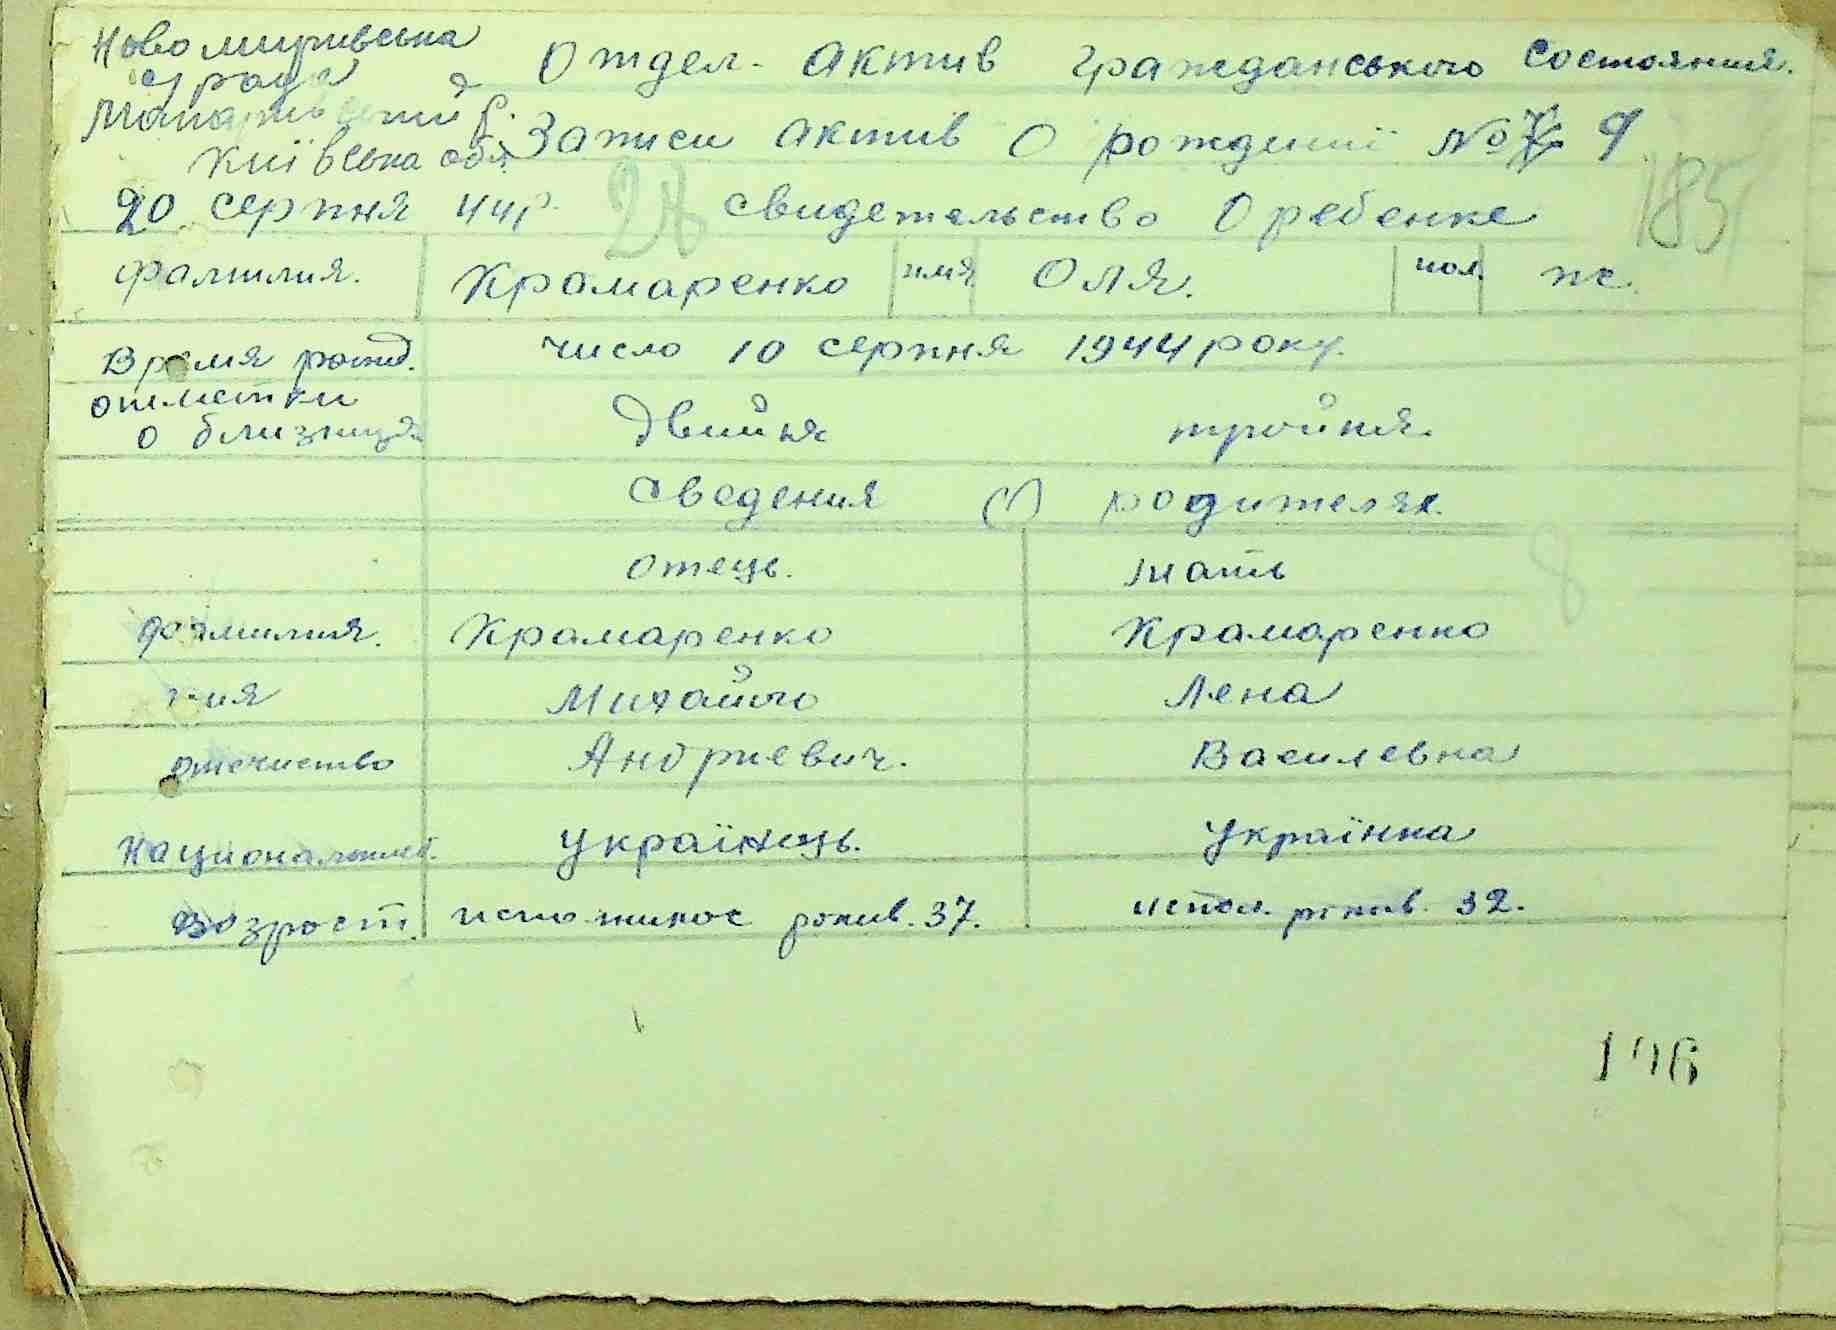 Новомирівська
с/рада
Макарівський р.
Київська обл.
Отдел. Актив Гражданського Состояния.
Записи Актив О рождениї № 9
185
20 серпня 44 р. 28 свидетельство О ребенке
фамилия. Крамаренко имя Оля. пол ж.
Время рожд. число 10 серпня 1944 року.
отметки
о близнецах двийня тройня.
Сведения О родителях.
отець. мать
8
фамилия. Крамаренко Крамаренко
имя Михайло Лена
отечиство Андриевич. Василевна
Национальност. Українець. Українка
возрост. рокив. 37. испол. рокив. 32.